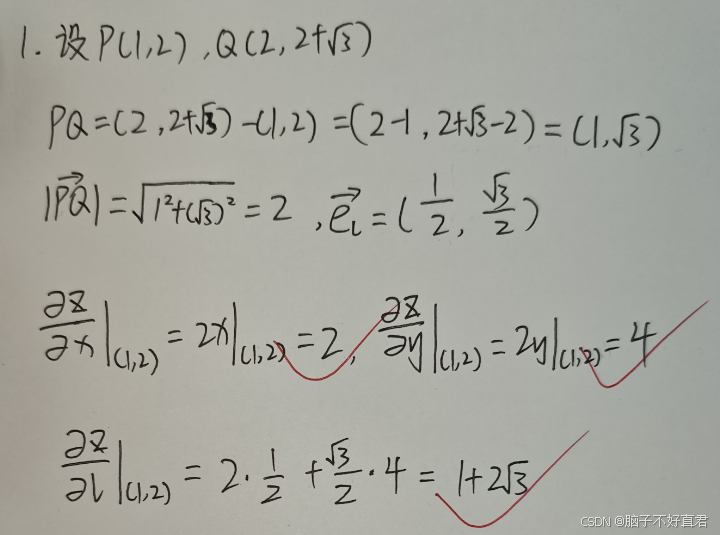 1. 设 P(1,2), Q(2, 2+√3)
PQ = (2, 2+√3) - (1, 2) = (2-1, 2+√3-2) = (1, √3)
|PQ⃗| = √(1²+(√3)²) = 2, e⃗_l = (1/2, √3/2)
∂z/∂x|_(1,2) = 2x|_(1,2) = 2, ∂z/∂y|_(1,2) = 2y|_(1,2) = 4
∂z/∂l|_(1,2) = 2·1/2 + √3/2·4 = 1+2√3
CSDN @脑子不好直君